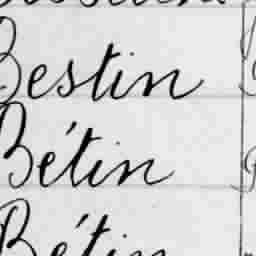 Bestin
Bétin
Bétin